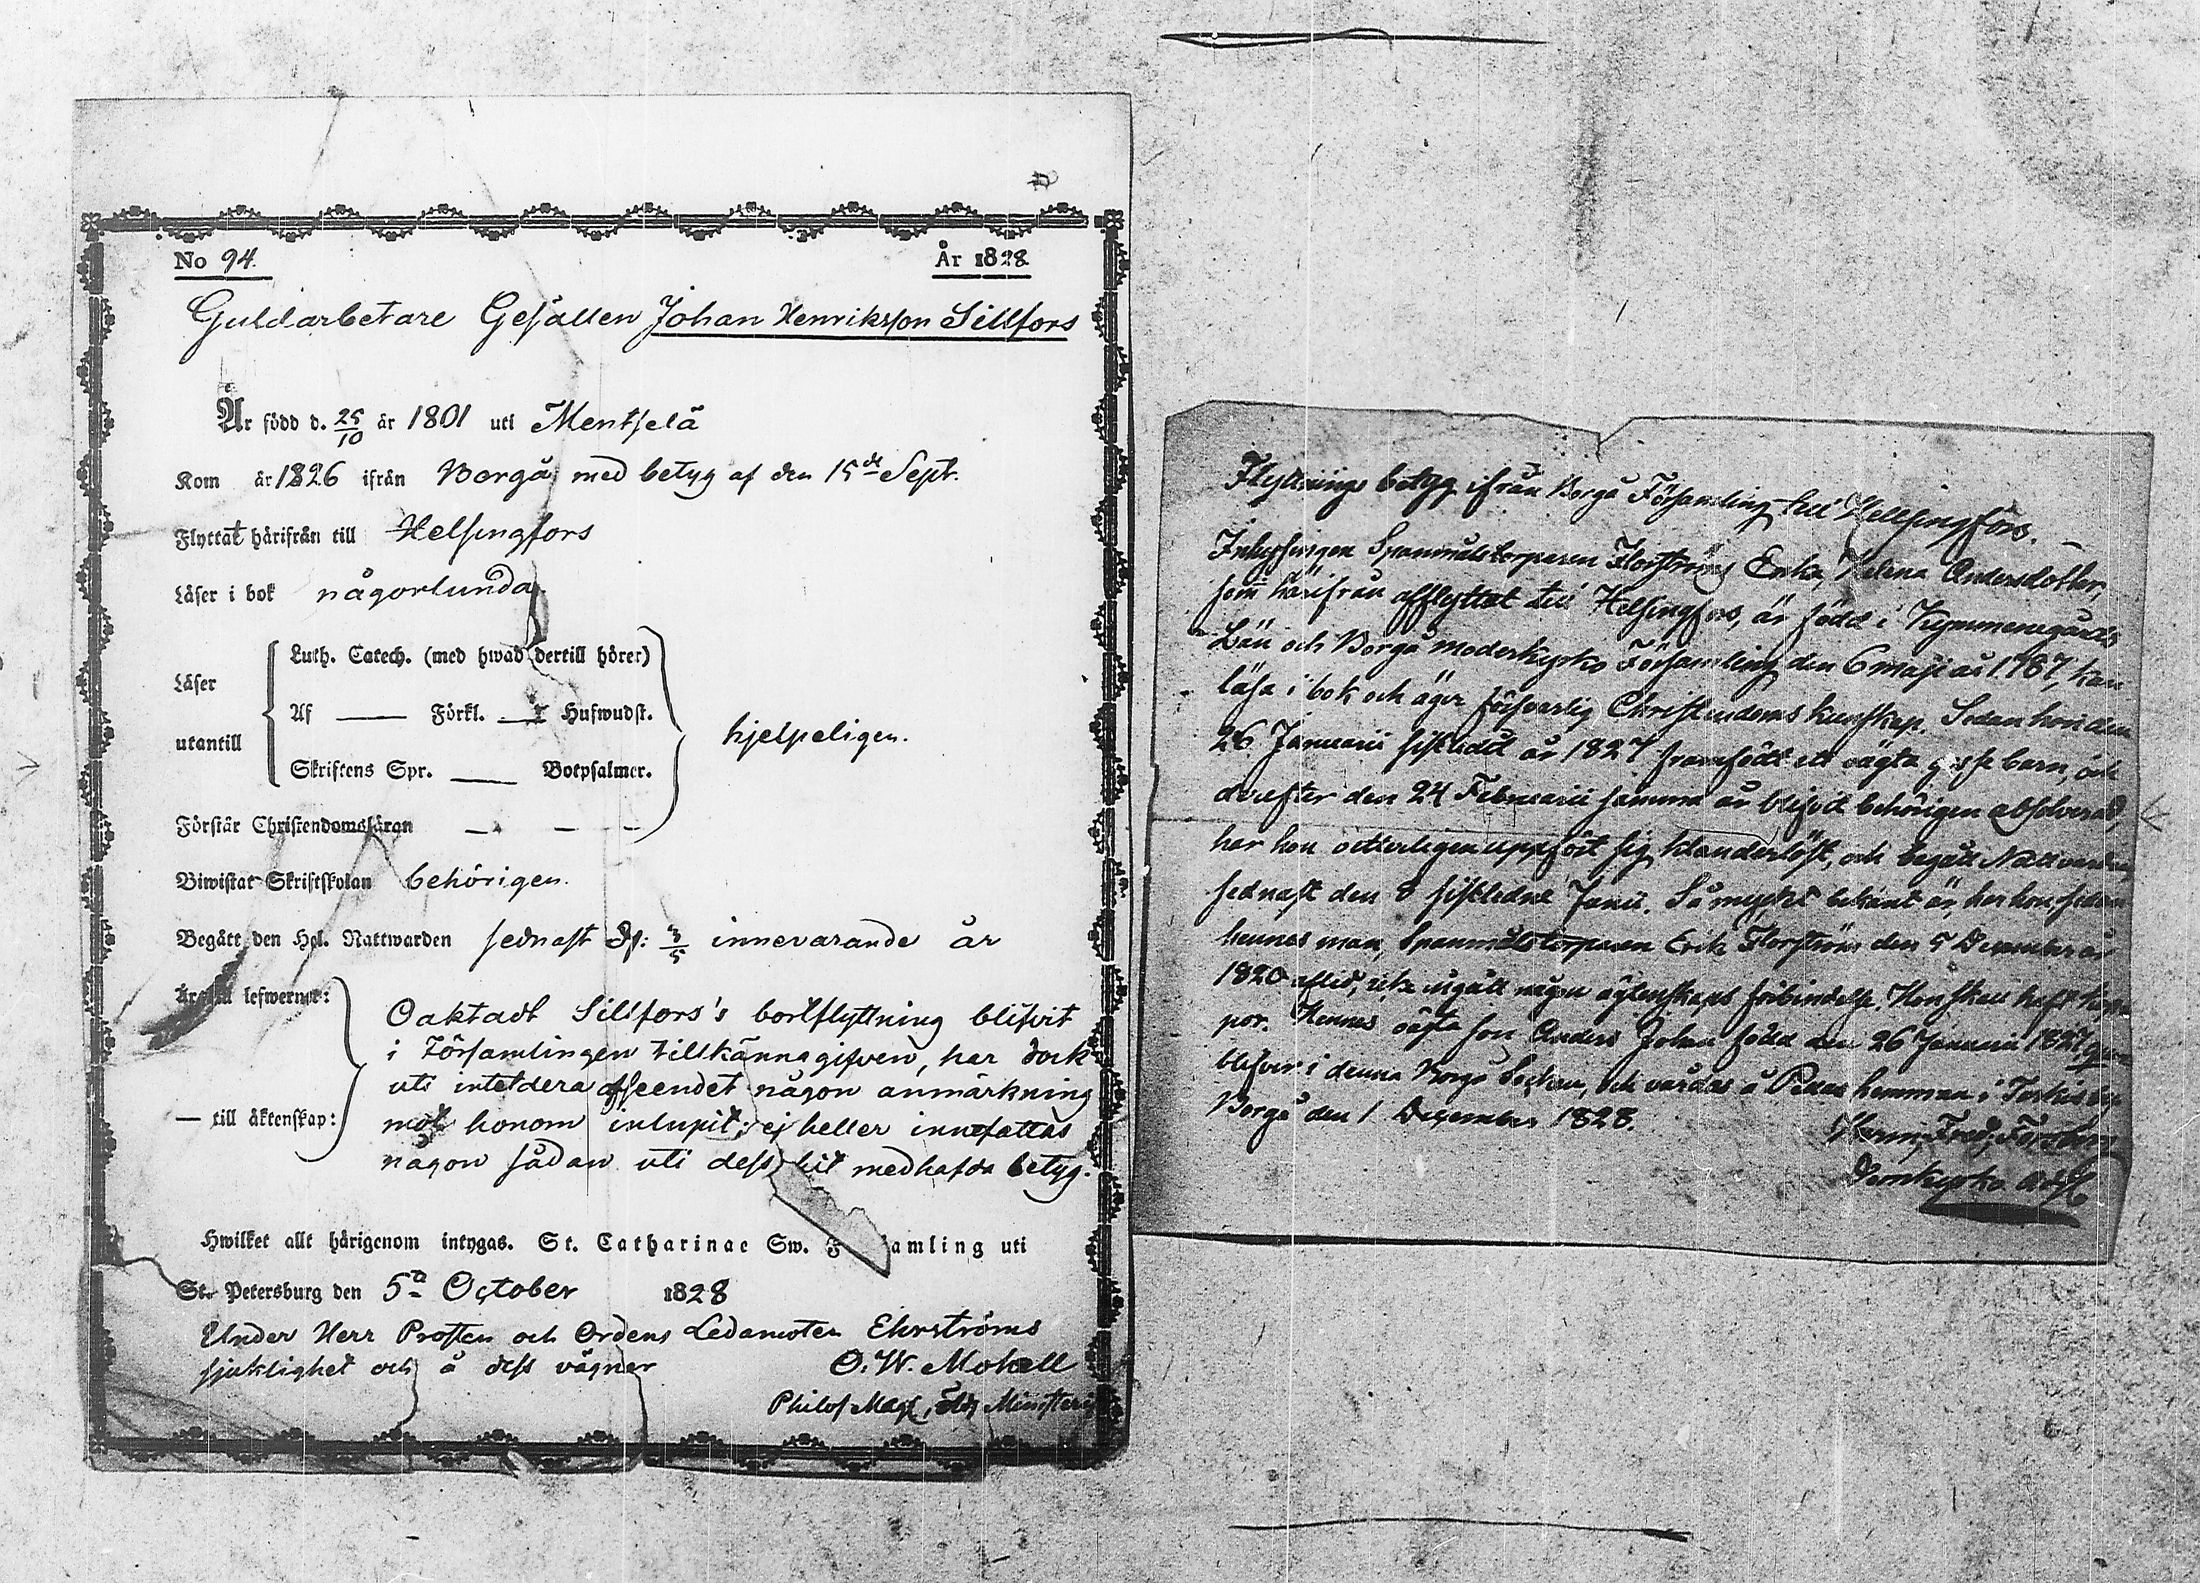 No 94.
År 1828
Guldarbetare Gesällen Johan Henriksson Sillfors
Är född d. 25/10 år 1801 uti Mentselä
Kom år 1826 ifrån Borgå med betyg af den 15de Sept.
Flyttat härifrån till Helsingfors
Läser i bok någorlunda
Läser utantill
Luth. Catech. (med hwad dertill hörer)
Af — Förkl. — Huswudst.
Skriftens Spr. — Botpsalmer.
hjelpeligen.
Förstår Christendomsläran — — —
Biwistat Skriftskolan behörigen.
Begått den Hel. Nattwarden sednast d: 3/5 innevarande år
lefwerne:
— till äktenskap:
Oaktadt Sillfors's bortflyttning blifvit
i Församlingen tillkännagifven, har dock
uti intetdera afseendet någon anmärkning
mot honom inlupit; ej heller innefattas
någon sådan uti dess hit medhafda betyg.
Hwilket allt härigenom intygas. St. Catharinae Sw. Församling uti
St. Petersburg den 5ta October 1828
Under Herr Prosten och Ordens Ledamoten Ehrströms
sjuklighet och å dess vägnar
O. W. Mokell
Philos Mag, Ministerii
Flyttnings betyg ifrån Borgå Församling till Hellsingfors.
Inhysingen Spanmålstorparen Florströms Enka, Helena Andersdotter,
som härifrån afflyttat till Helsingfors, är född i Kymmenegårds
Län och Borgå moderkyrko Församling den 6 maji år 1787, kan
läsa i bok och äger försvarlig Christendoms kunskap. Sedan hon den
26 Januarii sistledit år 1827 framfödt ett oägta gosse barn, och
derefter den 24 Februarii samma år blifvit behörigen absolverad,
har hon vitterligen uppfört sig klanderlöst, och begått Nattvarden
sednast den 8 sistledne Junii. Så mycket bekant är, har hon, sedan
hennes man, Spanmålstorparen Erik Florström den 5 December år
1820 afled, icke ingått någon ägtenskaps förbindelse. Hon skall haft kop-
por. Hennes oägta son Anders Johan född den 26 Januarii 1827, qvar
blifver i denna Borgå Sochn, och vårdas å hemman i
Borgå den 1 December 1828.
Fred:
Domkyrko Adj